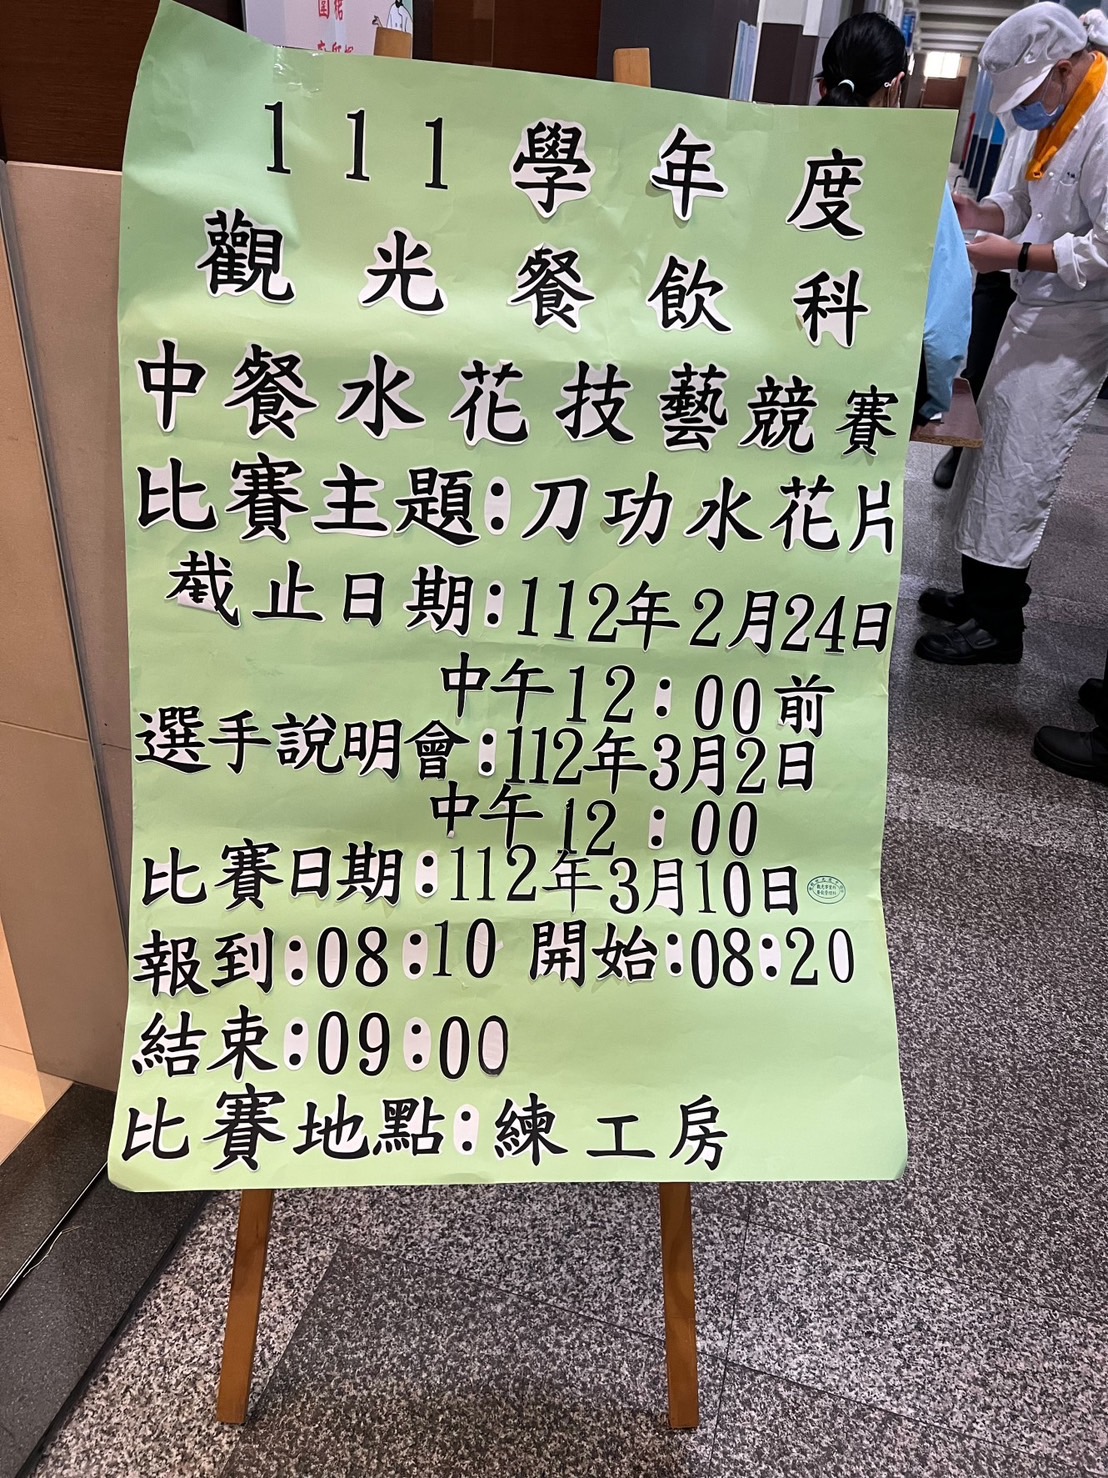 圍裙
111學年度
觀光餐飲科
中餐水花技藝競賽
比賽主題:刀功水花片
截止日期:112年2月24日
中午12:00前
選手說明會:112年3月2日
中午12:00
比賽日期:112年3月10日
報到:08:10 開始:08:20
結束:09:00
比賽地點:練工房